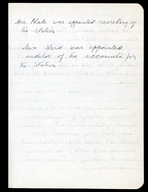 Mr. Blake was appointed secretary of
the station
was appointed
auditor of the accounts for
the station